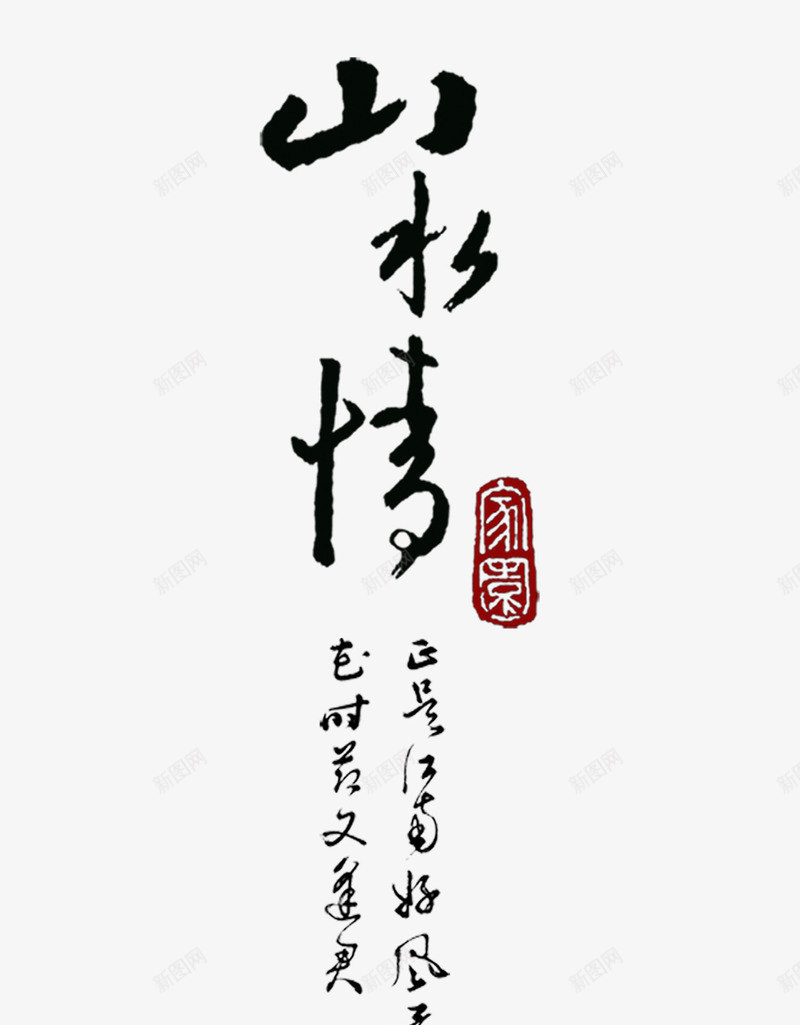 山水
情
家園
正是江南好风
花时节又逢君
新图网